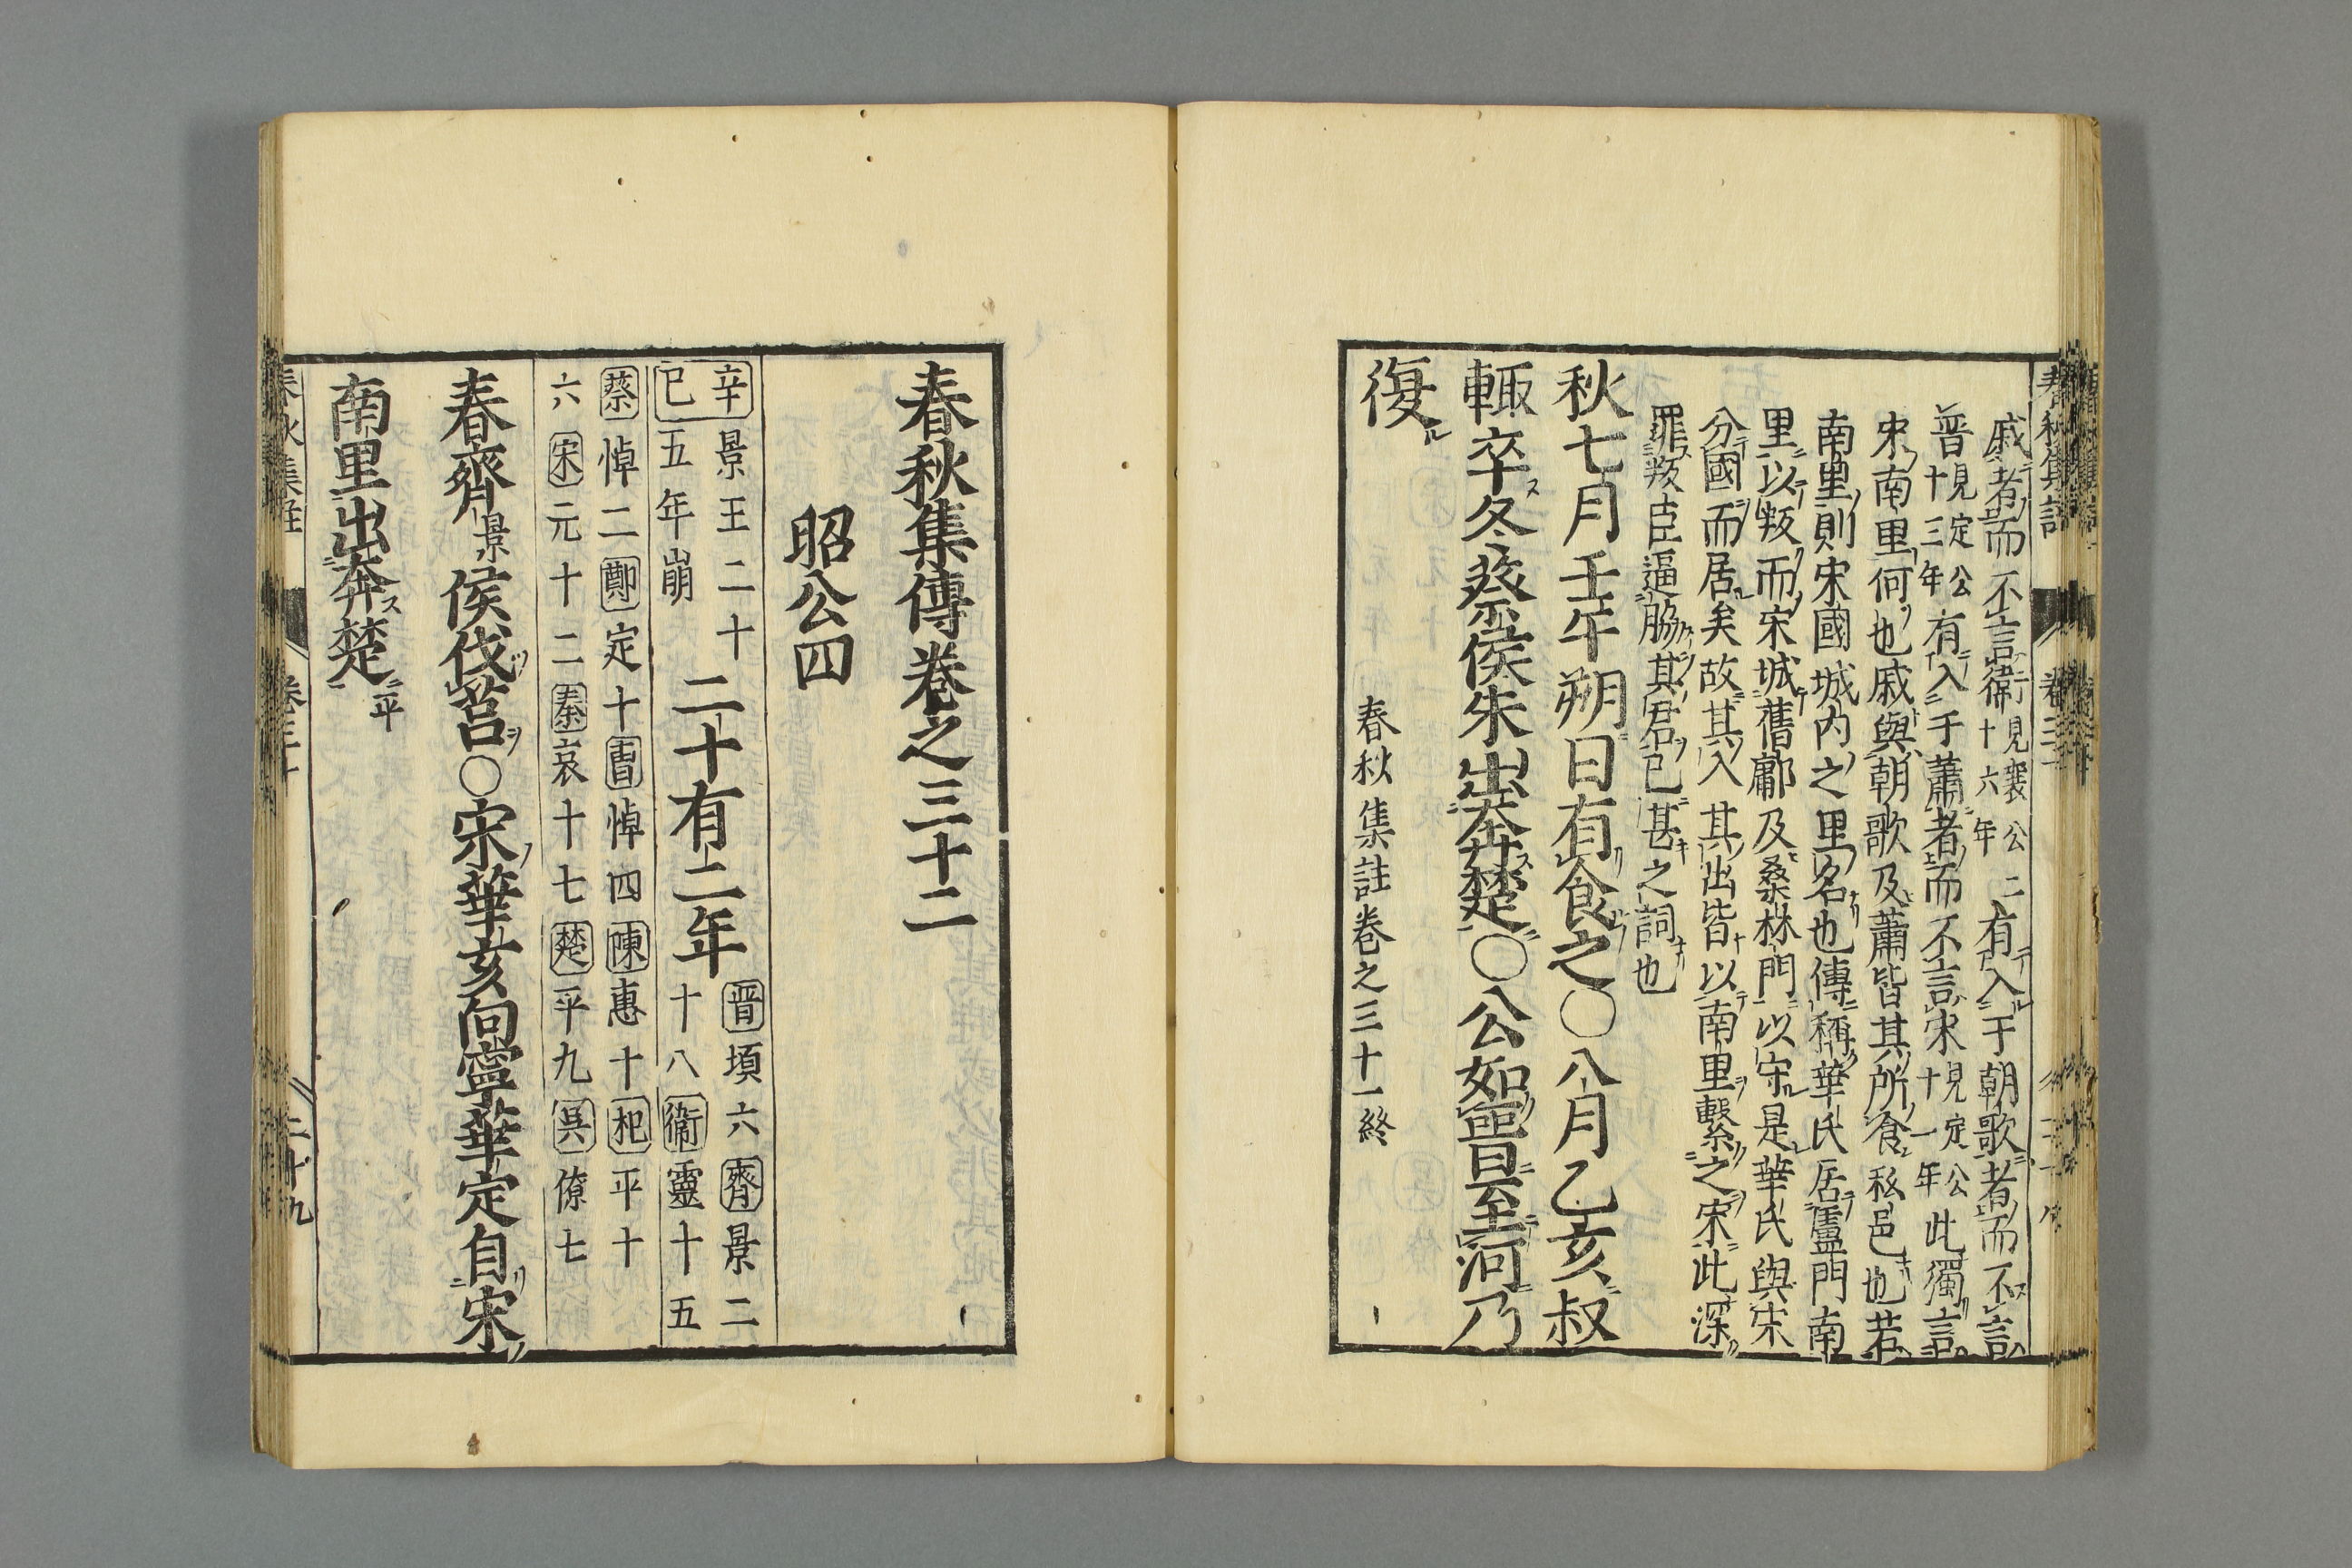 戚者而不言衞見襄公二十六年有入于朝歌者而不言
晉見定公十三年有入于蕭者而不言宋見定公十一年此獨言
宋南里何也戚與朝歌及蕭皆其所食私邑也若
南里則宋國城内之里名也傳稱華氏居盧門南
里以叛而宋城舊鄘及桑林門以守是華氏與宋
分國而居矣故其入其出皆以南里繫之宋此深
罪叛臣逼脇其君已甚之詞也
秋七月壬午朔日有食之〇八月乙亥叔
輙卒冬蔡侯朱出奔楚〇公如晉至河乃
復
春秋集註卷之三十一終
春秋集傳卷之三十二
昭公四
辛巳景王二十五年崩二十有二年晉頃六齊景二十八衞靈十五
蔡悼二鄭定十曹悼四陳惠十杞平十
六宋元十二秦哀十七楚平九吳僚七
春齊景侯伐莒〇宋華亥向寧華定自宋
南里出奔楚平